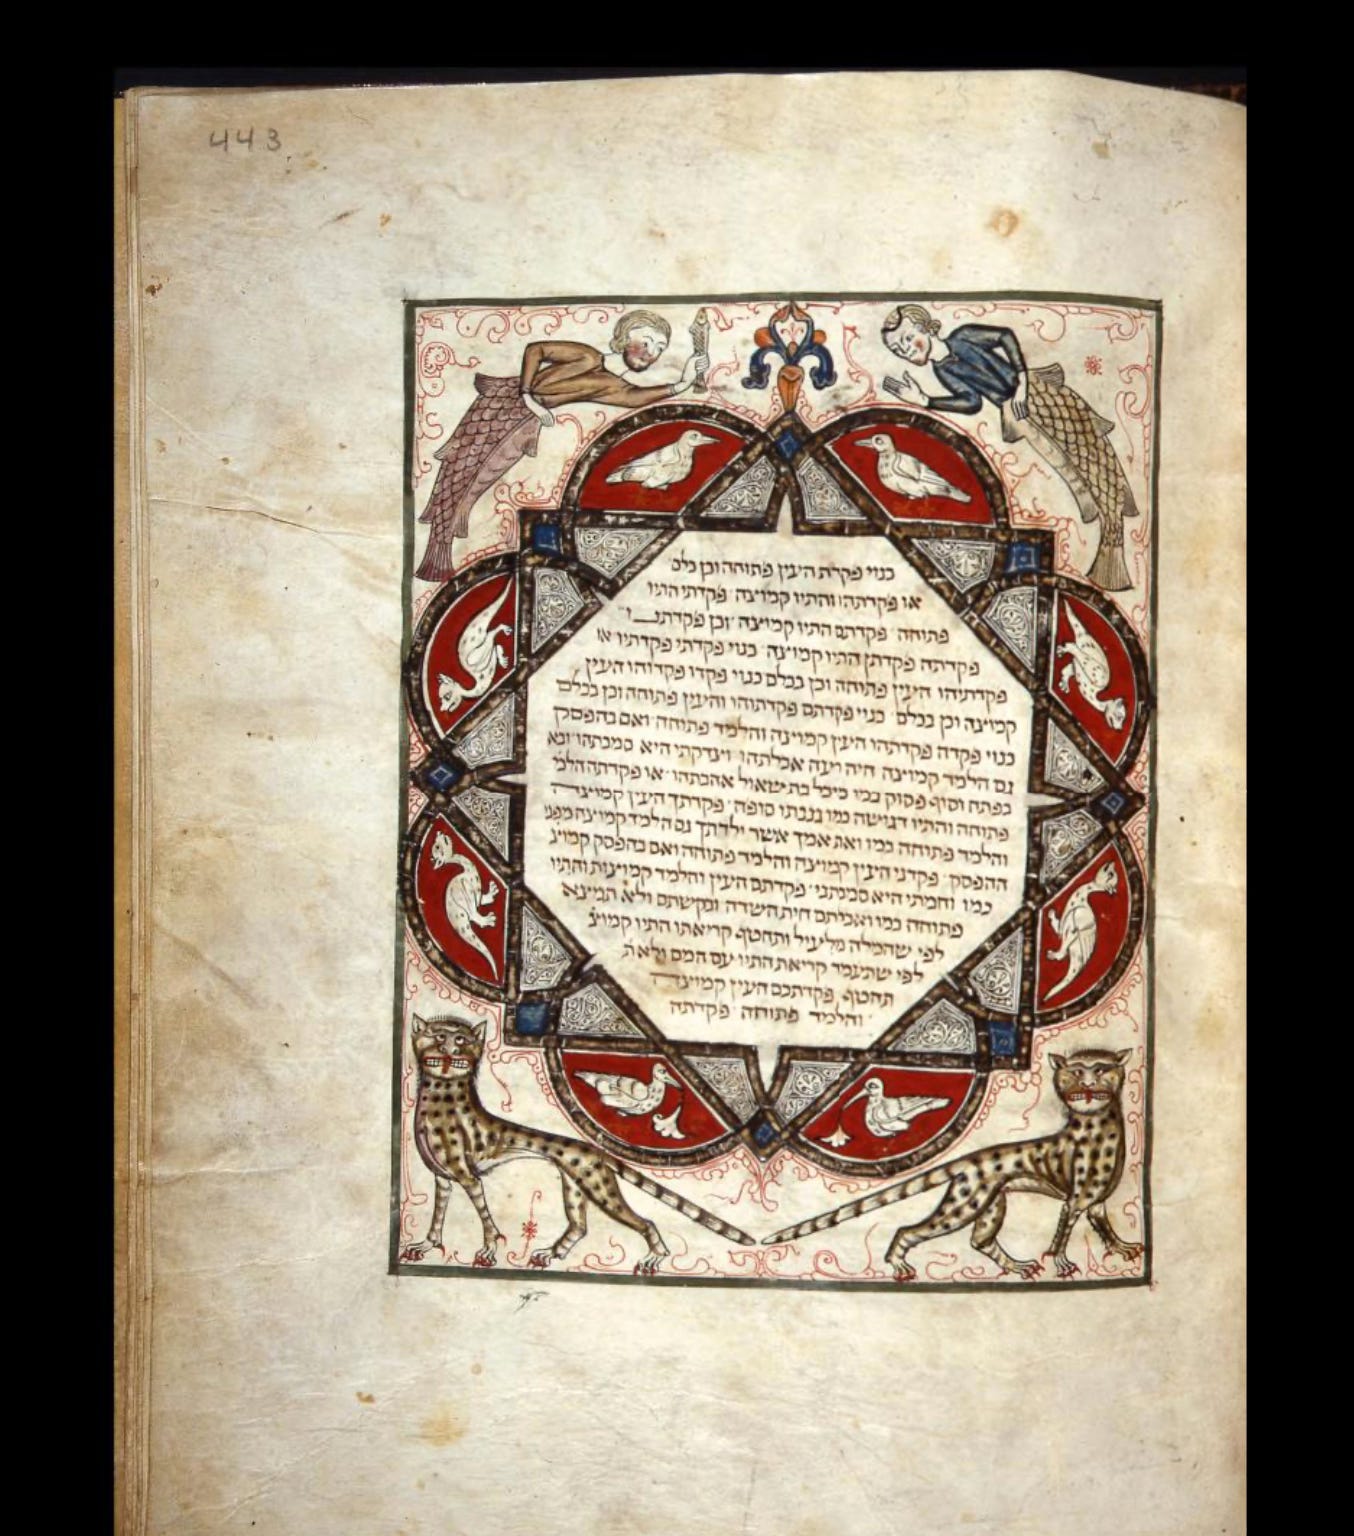 443
כנוי פקדת העין פתוחה וכן כלם
או פקדתהו והתיו קמוצה פקדתי התיו
פתוחה פקדתם התיו קמוצה וכן פקדתנו
פקדתה פקדתן התיו קמוצה כנוי פקדתי פקדתיו או
פקדתיהו העין פתוחה וכן בכלם כנוי פקדו פקדוהו העין
קמוצה וכן בכלם כנוי פקדתם פקדתוהו והעין פתוחה וכן בכלם
כנוי פקדה פקדתהו העין קמוצה והלמד פתוחה ואם בהפסק
גם הלמד קמוצה חיה רעה אכלתהו וצדקתי היא סמכתהו ובא
בפתח וסוף פסוק כמו מיכל בת שאול אהבתהו או פקדתה הלמ
פתוחה והתיו דגושה כמו גנבתו סופה פקדתך העין קמוצה
והלמד פתוחה כמו ואת אמך אשר ילדתך גם הלמד קמוצה מפני
ההפסק פקדני העין קמוצה והלמד פתוחה ואם בהפסק קמוצ
כמו וחמתי היא סמכתני פקדתם העין והלמד קמוצות והתיו
פתוחה כמו ואכלתם חית השדה ובקשתם ולא תמצא
לפי שהמלה מלעיל ותחטף קריאתו התיו קמוצ
לפי שתעמד קריאת התיו עם המם ולא ת
תחטף פקדתכם העין קמוצה
והלמד פתוחה פקדתה